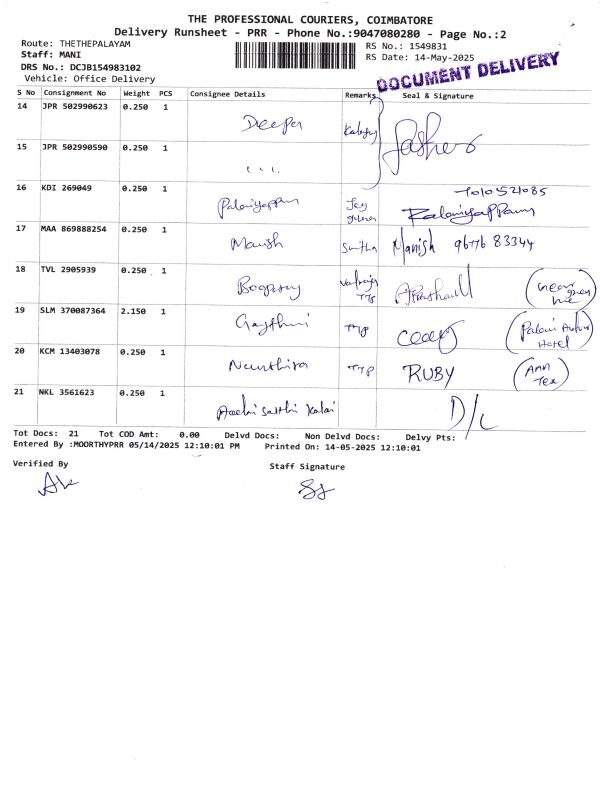 THE PROFESSIONAL COURIERS, COIMBATORE
Delivery Runsheet - PRR - Phone No.:9047080280 - Page No.:2
Route: THETHEPALAYAM
RS No.: 1549831
Staff: MANI
RS Date: 14-May-2025
DRS No.: DCJB154983102
Vehicle: Office Delivery
DOCUMENT DELIVERY
S No Consignment No Weight PCS Consignee Details Remarks Seal & Signature
14 JPR 502990623 0.250 1 Deepa
15 JPR 502990590 0.250 1
16 KDI 269049 0.250 1 Palaniyappan Palaniyappan
17 MAA 869888254 0.250 1 Manish Manish 96776 83344
18 TVL 2905939 0.250 1
19 SLM 370087364 2.150 1 Hotel
20 KCM 13403078 0.250 1 RUBY (Ann Tex)
21 NKL 3561623 0.250 1 D/L
Tot Docs: 21 Tot COD Amt: 0.00 Delvd Docs: Non Delvd Docs: Delvy Pts:
Entered By :MOORTHYPRR 05/14/2025 12:10:01 PM Printed On: 14-05-2025 12:10:01
Verified By
Staff Signature